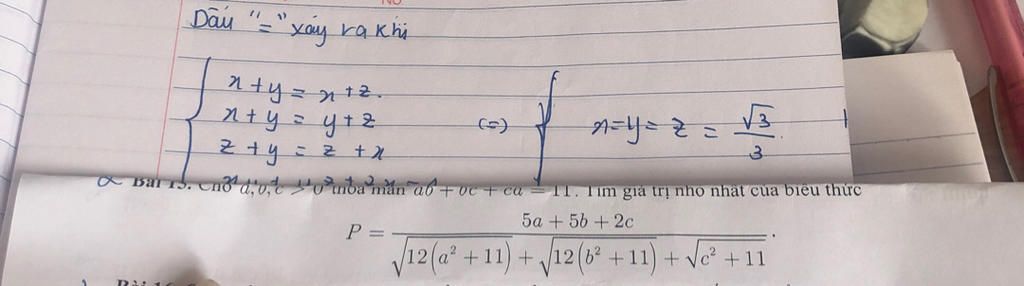 Dấu "=" xảy ra khi
x + y = x + z.
x + y = y + z (=) x = y = z = √3/3.
z + y = z + x
Bài 15. Cho a, b, c > 0 thỏa mãn ab + bc + ca = 11. Tìm giá trị nhỏ nhất của biểu thức
P = (5a + 5b + 2c)/(√(12(a² + 11)) + √(12(b² + 11)) + √(c² + 11)).